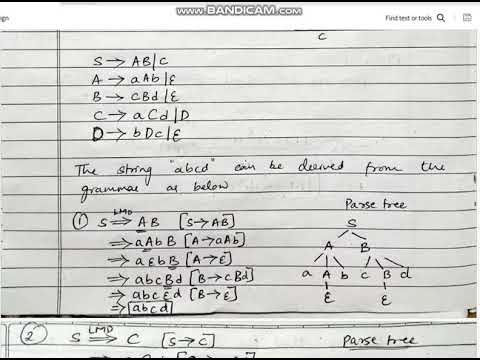 www.BANDICAM.com
sign
Find text or tools
C
S → AB|C
A → aAb|ε
B → cBd|ε
C → aCd|D
D → bDc|ε
The string "abcd" can be derived from the
grammar as below
① S ⇒ AB [S→AB] LMD
⇒ aAbB [A→aAb]
⇒ aεbB [A→ε]
⇒ abcBd [B→cBd]
⇒ abcεd [B→ε]
⇒ abcd
Parse tree
S
A B
a A b c B d
ε ε
② S ⇒ C [S→C] LMD
Parse tree